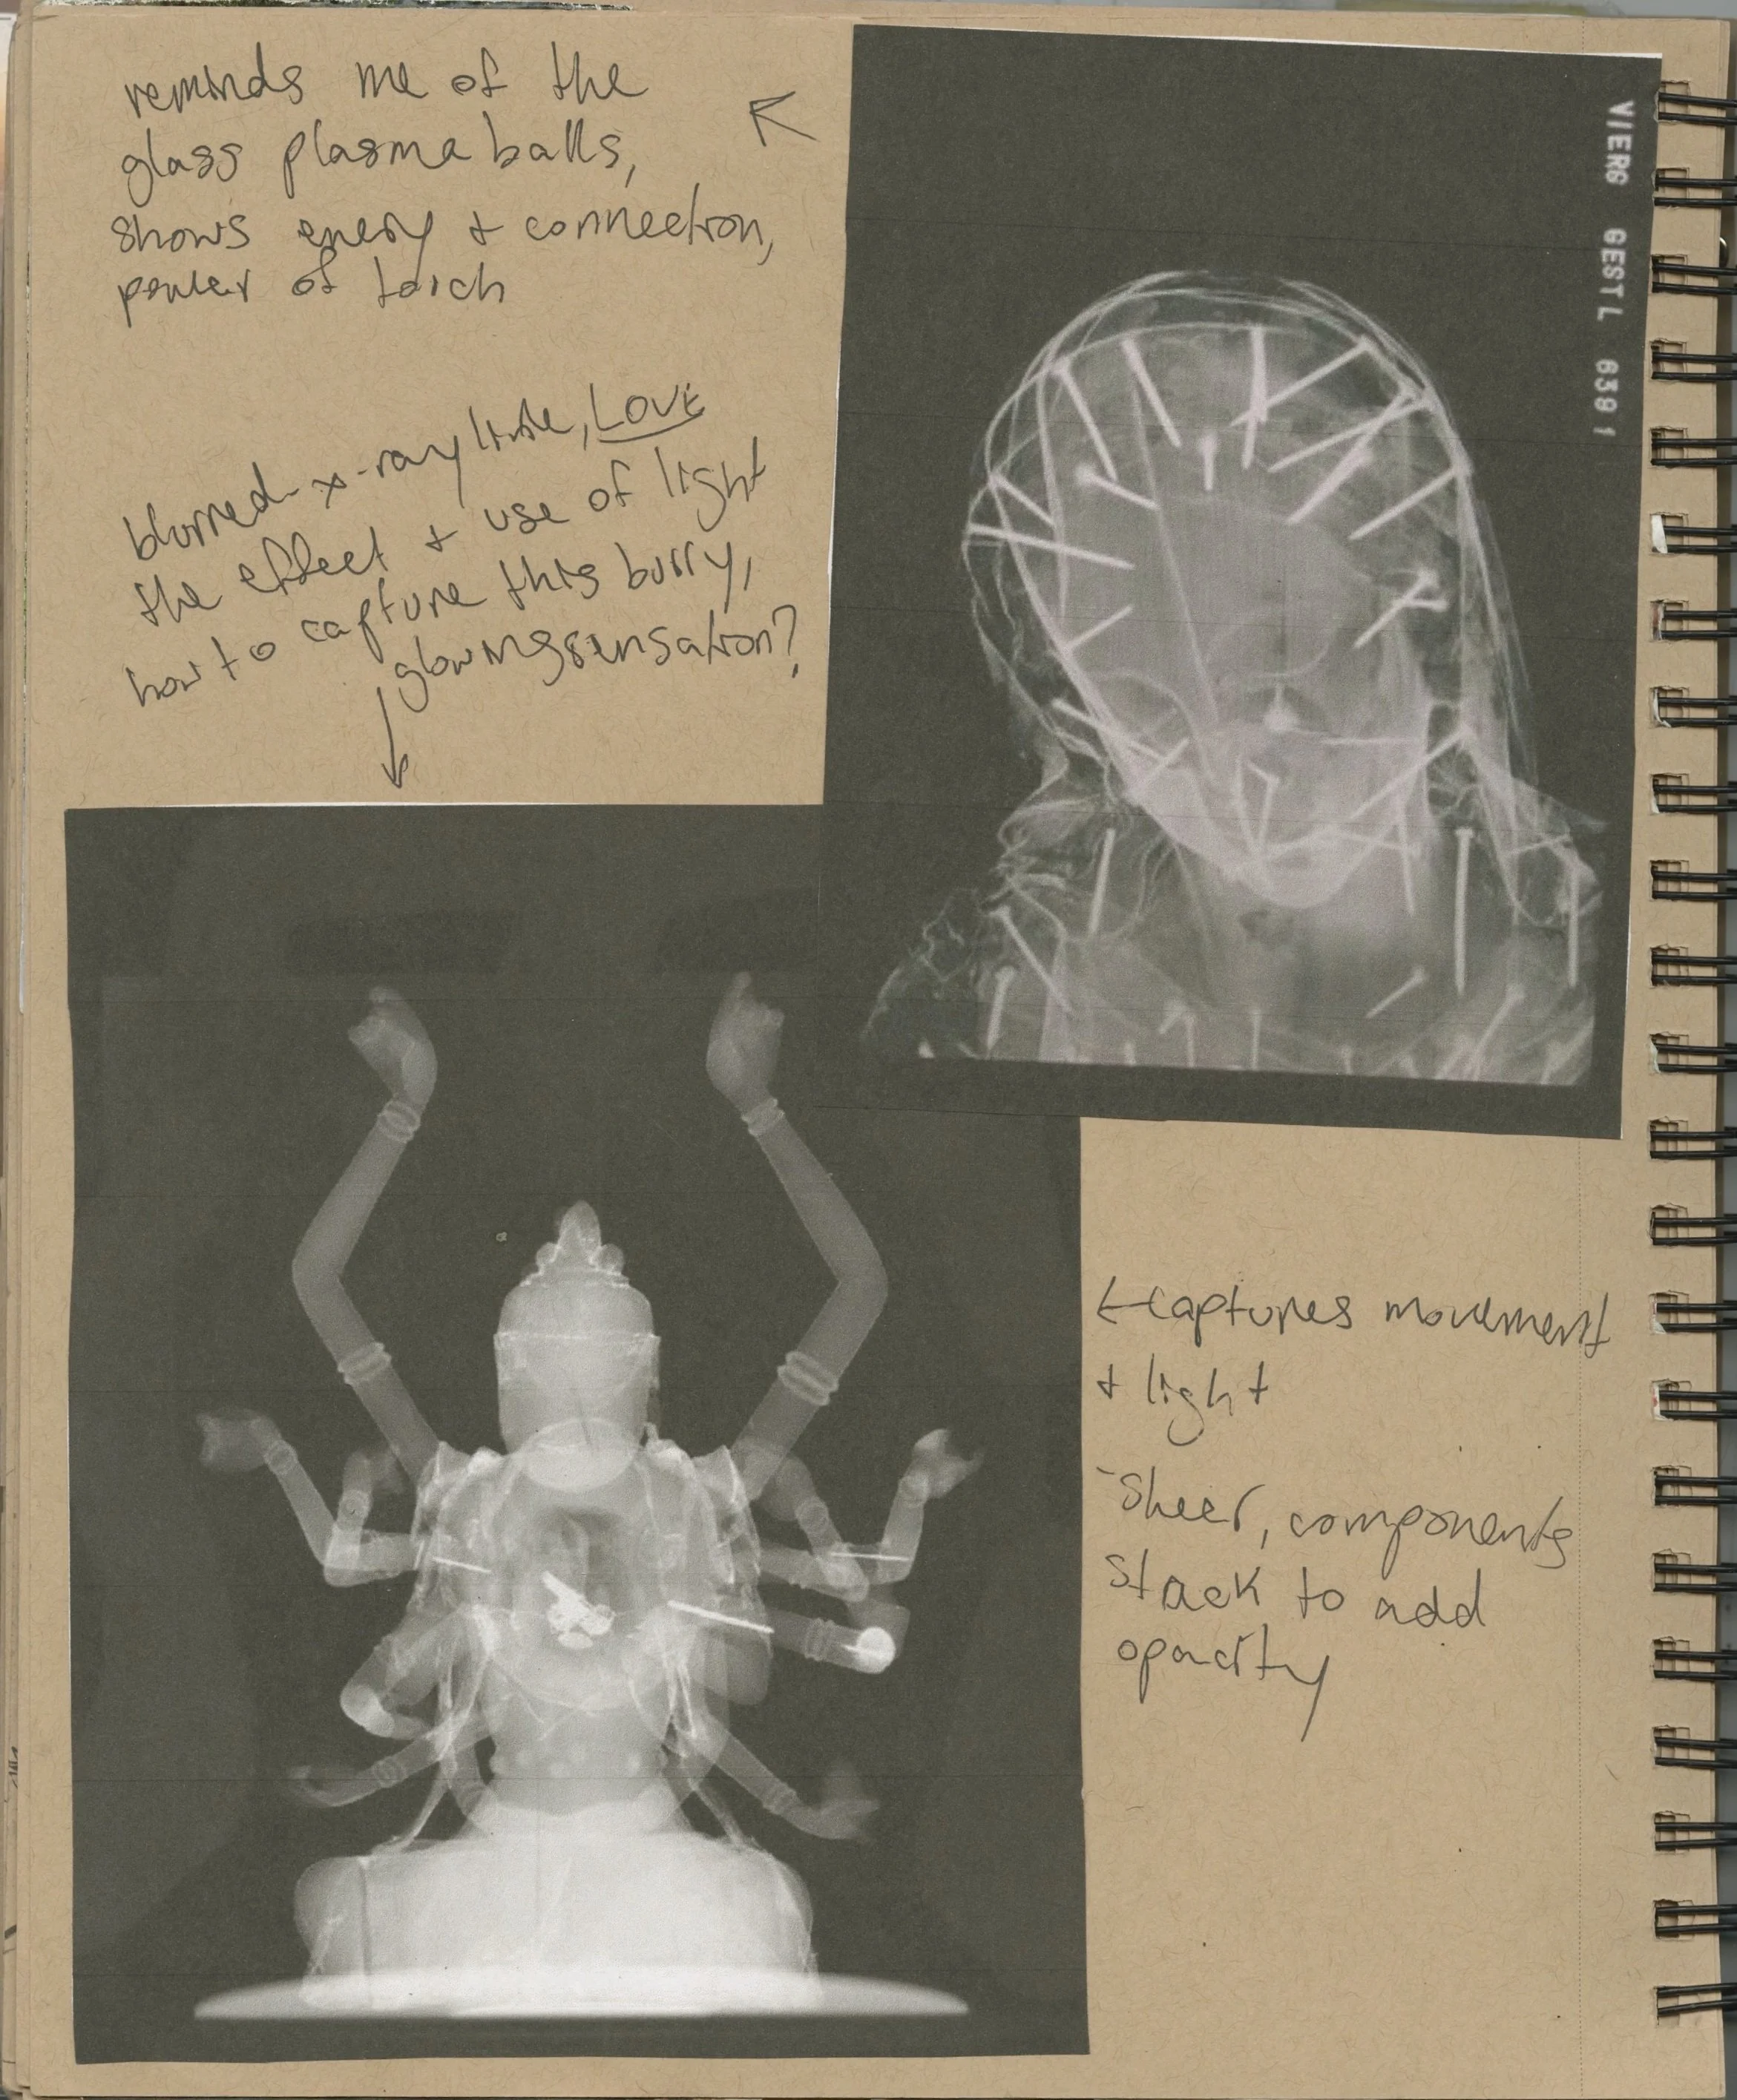 reminds me of the
glass plasma balls,
shows energy + connection,
power of touch
blurred x-ray like, LOVE
the effect + use of light
how to capture this burry,
glowing sensation?
VIERG GESTL 6391
←captures movement
+ light
-sheer, components
stack to add
opacity